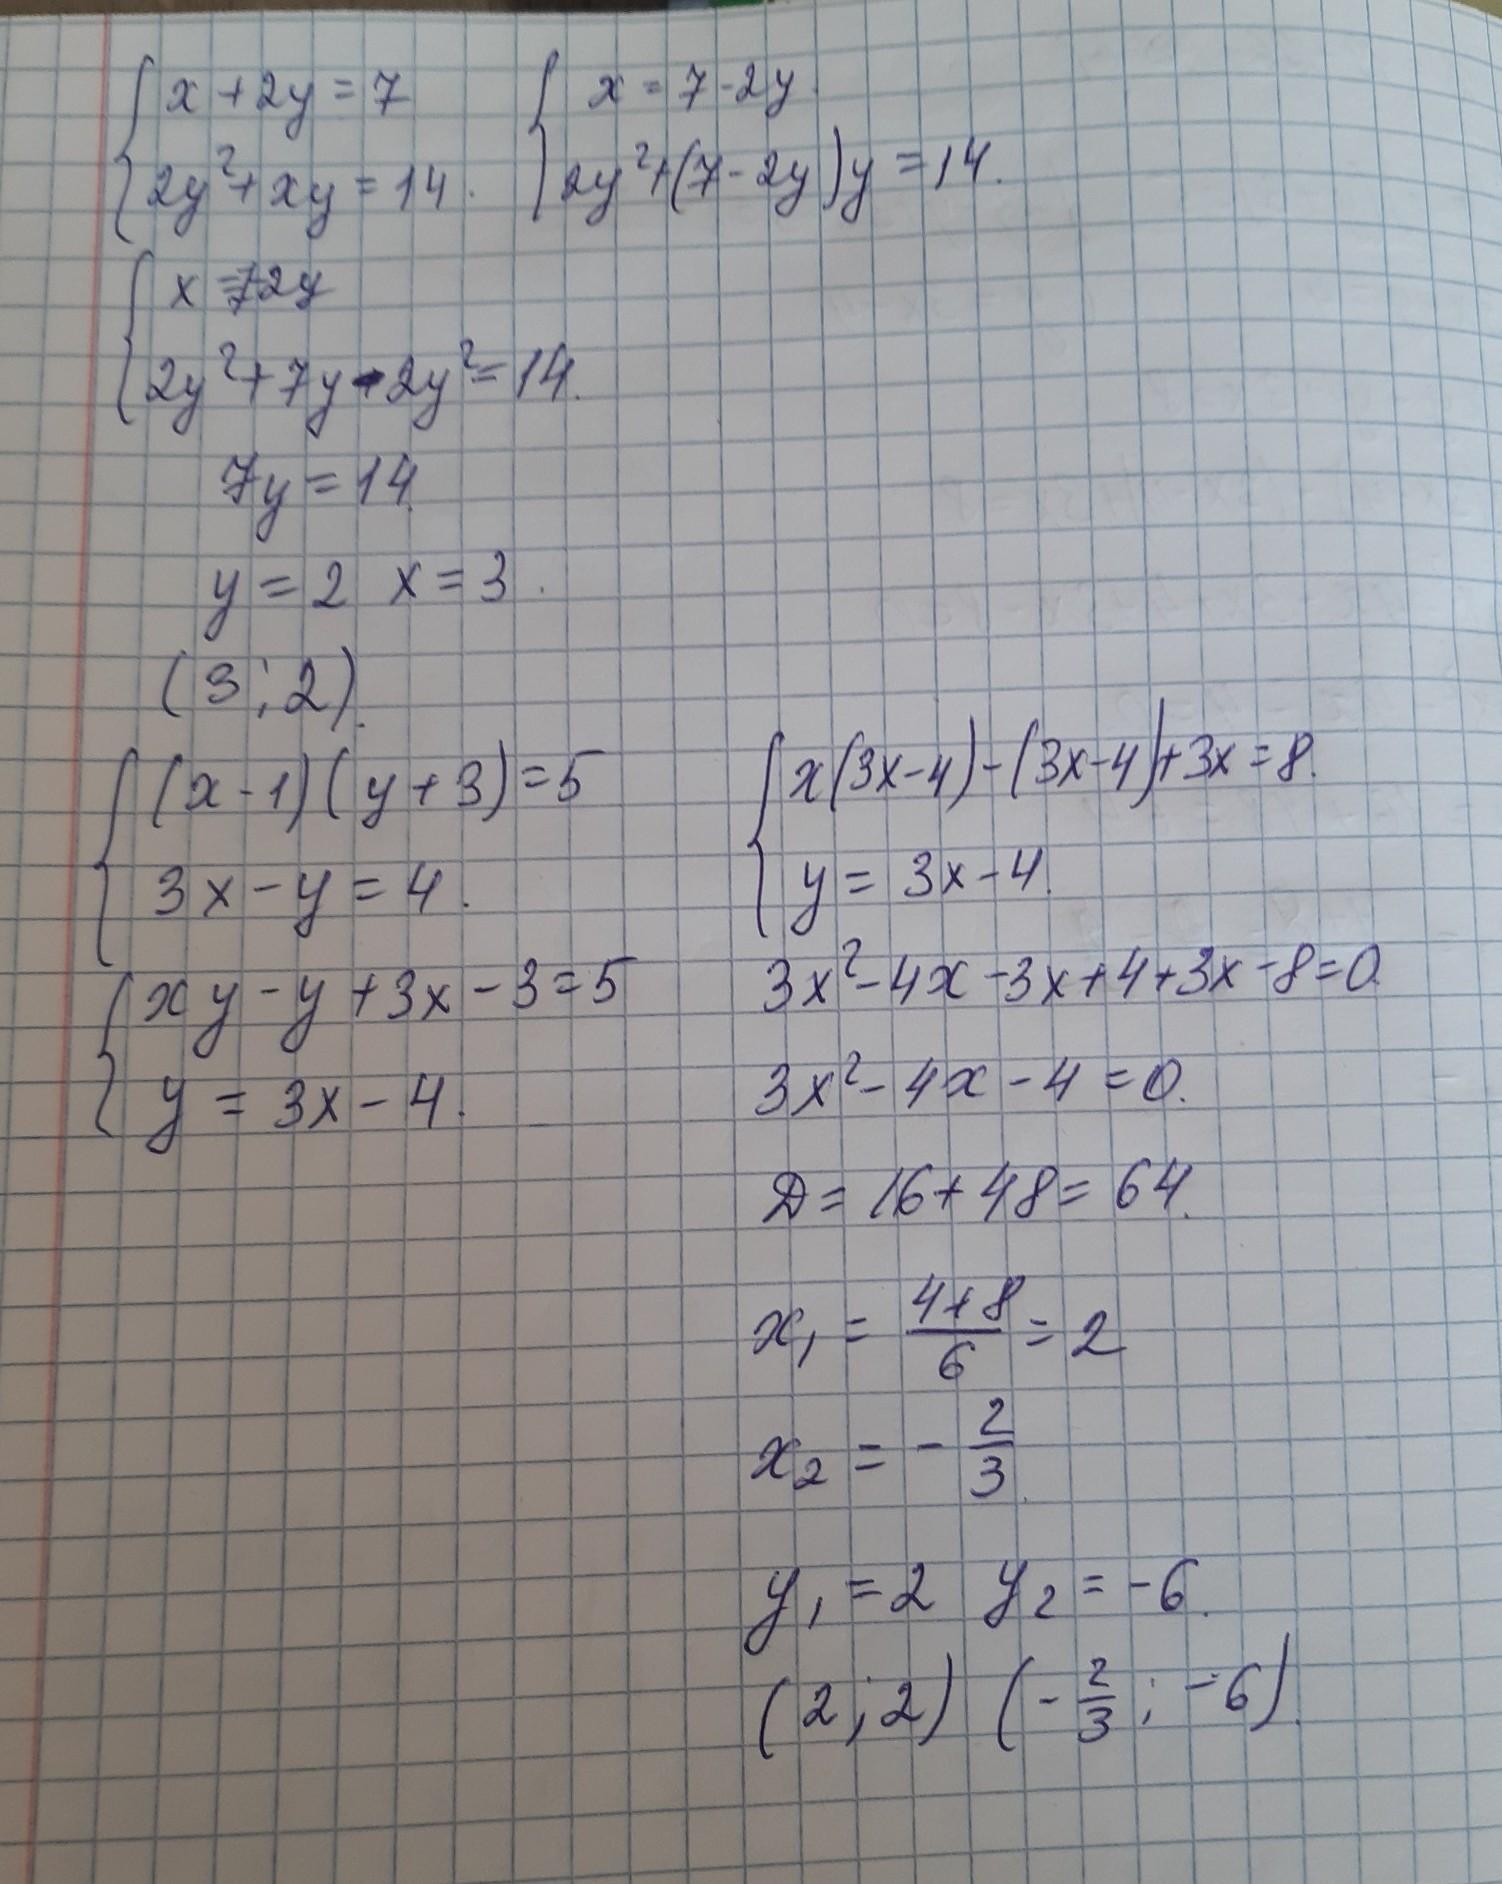 { x + 2y = 7
2y² + xy = 14.
{ x = 7 - 2y.
2y² + (7 - 2y)y = 14.
{ x = 7 - 2y
2y² + 7y - 2y² = 14.
7y = 14
y = 2 x = 3.
(3; 2).
{ (x - 1)(y + 3) = 5
3x - y = 4.
{ xy - y + 3x - 3 = 5
y = 3x - 4.
{ x(3x - 4) - (3x - 4) + 3x = 8.
y = 3x - 4.
3x² - 4x - 3x + 4 + 3x - 8 = 0.
3x² - 4x - 4 = 0.
D = 16 + 48 = 64.
x₁ = (4 + 8)/6 = 2
x₂ = - 2/3.
y₁ = 2 y₂ = -6.
(2; 2) (- 2/3; -6).